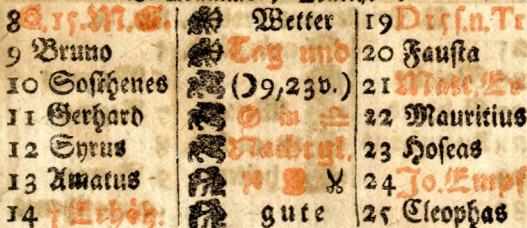 8 G. 15. M. G. Wetter 19 D 15 s. n. Tr
9 Bruno Tag und 20 Fausta
10 Sosthenes (☽9,23v.) 21 Matt. Ev
11 Gerhard ☉ in ♎ 22 Mauritius
12 Syrus Nachtgl. 23 Hoseas
13 Amatus 24 Jo. Empf
14 † Erhöh. gute 25 Cleophas